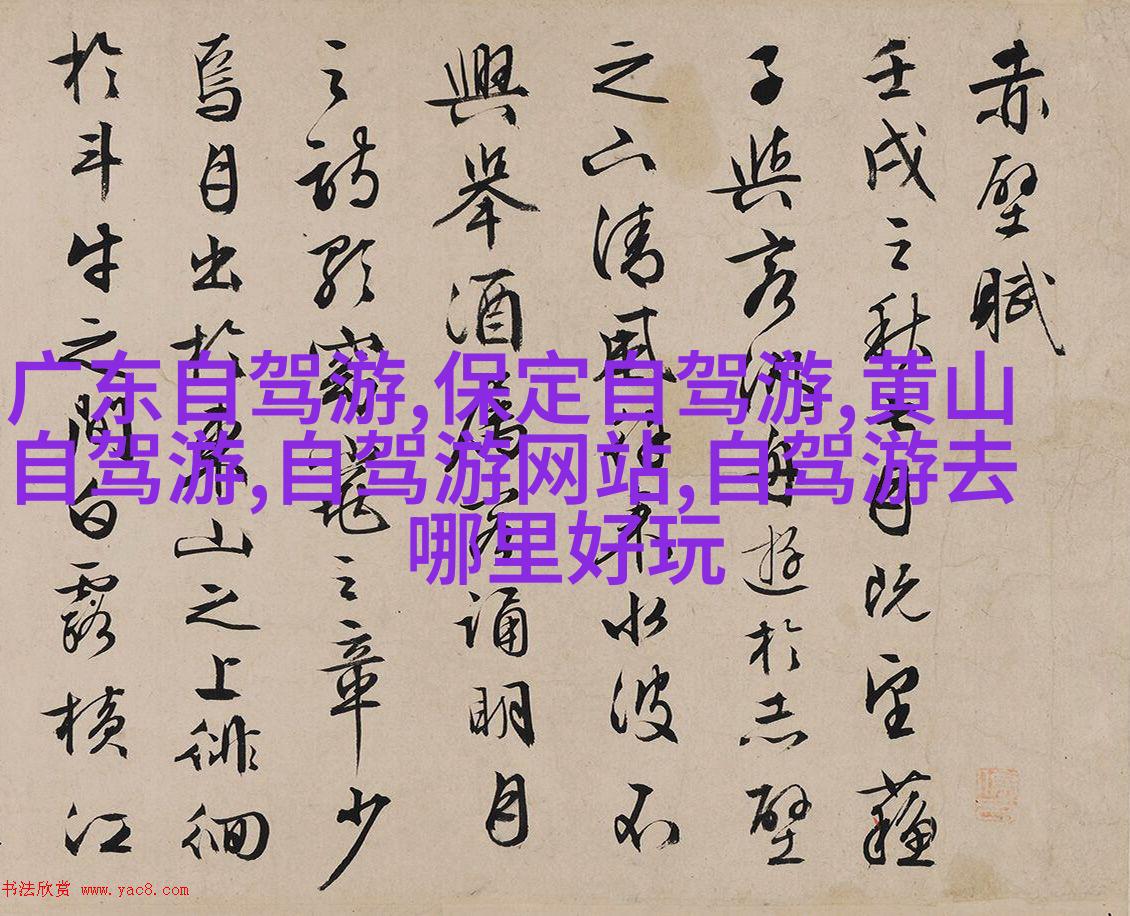 赤壁賦
壬戌之秋七月既望蘇
子與客泛舟遊於赤壁
之下清風徐來水波不
興舉酒屬客誦明月
之詩歌窈窕之章少
焉月出於東山之上徘徊
於斗牛之間白露橫江
广东自驾游,保定自驾游,黄山
自驾游,自驾游网站,自驾游去
哪里好玩
书法欣赏 www.yac8.com